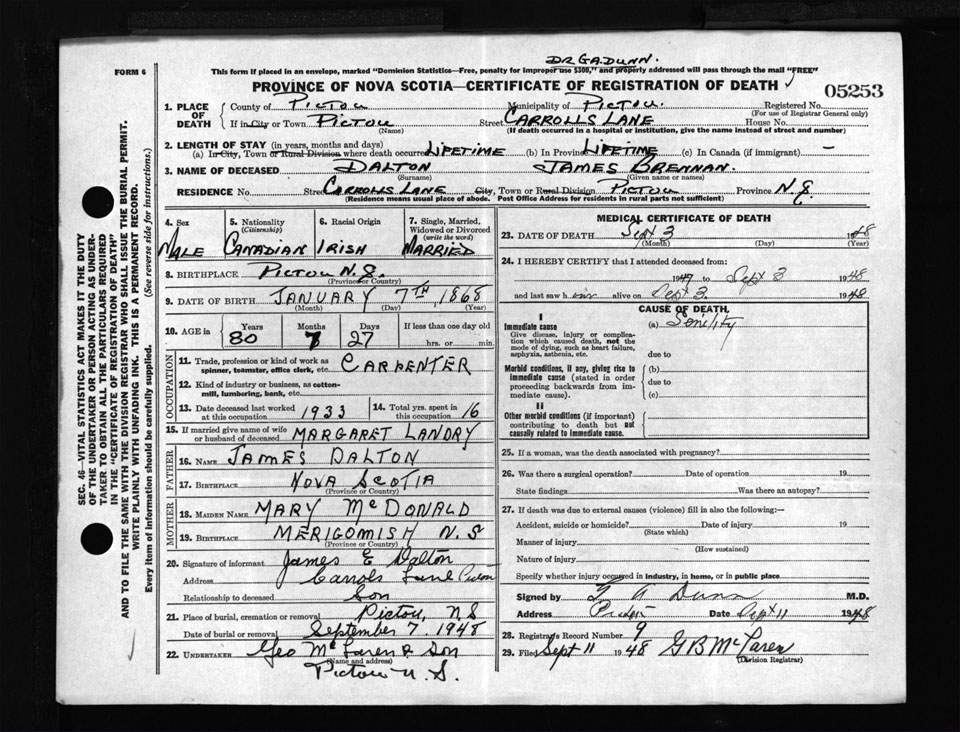 DR G.A. DUNN.
FORM 6
This form if placed in an envelope, marked "Dominion Statistics—Free, penalty for improper use $300," and properly addressed will pass through the mail "FREE"
PROVINCE OF NOVA SCOTIA—CERTIFICATE OF REGISTRATION OF DEATH
05253
1. PLACE OF DEATH County of PICTOU Municipality of PICTOU. Registered No.
(For use of Registrar General only)
If in City or Town PICTOU Street CARROLLS LANE House No.
(Name) (If death occurred in a hospital or institution, give the name instead of street and number)
2. LENGTH OF STAY (in years, months and days)
(a) In City, Town or Rural Division where death occurred LIFETIME (b) In Province LIFETIME (c) In Canada (if immigrant) —
3. NAME OF DECEASED DALTON JAMES BRENNAN.
(Surname) (Given name or names)
RESIDENCE No. Street CARROLLS LANE City, Town or Rural Division PICTOU Province N.S.
(Residence means usual place of abode. Post Office Address for residents in rural parts not sufficient)
4. Sex MALE
5. Nationality (Citizenship) CANADIAN
6. Racial Origin IRISH
7. Single, Married, Widowed or Divorced (write the word) MARRIED
8. BIRTHPLACE PICTOU N.S.
(Province or Country)
9. DATE OF BIRTH JANUARY 7TH, 1868
(Month) (Day) (Year)
10. AGE in Years 80 Months 7 Days 27 If less than one day old
hrs. or min.
OCCUPATION
11. Trade, profession or kind of work as spinner, teamster, office clerk, etc. CARPENTER
12. Kind of industry or business, as cotton-mill, lumbering, bank, etc.
13. Date deceased last worked at this occupation 1933 14. Total yrs. spent in this occupation 16
15. If married give name of wife or husband of deceased MARGARET LANDRY
FATHER
16. NAME JAMES DALTON
17. BIRTHPLACE NOVA SCOTIA
(Province or Country)
MOTHER
18. MAIDEN NAME MARY McDONALD
19. BIRTHPLACE MERIGOMISH N.S
(Province or Country)
20. Signature of informant James E Dalton
Address Carrols Lane Pictou
Relationship to deceased Son
21. Place of burial, cremation or removal Pictou, N.S
Date of burial or removal September 7. 1948
22. UNDERTAKER Geo McLaren & Son
(Name and address)
Pictou N.S.
MEDICAL CERTIFICATE OF DEATH
23. DATE OF DEATH Sept 3 1948
(Month) (Day) (Year)
24. I HEREBY CERTIFY that I attended deceased from:
1947 to Sept 3 1948
and last saw him alive on Sept 3. 1948
CAUSE OF DEATH
I
Immediate cause (a) Senility
Give disease, injury or complication which caused death, not the mode of dying, such as heart failure, asphyxia, asthenia, etc.
due to
Morbid conditions, if any, giving rise to immediate cause (stated in order proceeding backwards from immediate cause).
(b)
due to
(c)
II
Other morbid conditions (if important) contributing to death but not causally related to immediate cause.
25. If a woman, was the death associated with pregnancy?
26. Was there a surgical operation? Date of operation 19
State findings Was there an autopsy?
27. If death was due to external causes (violence) fill in also the following:—
Accident, suicide or homicide? Date of injury 19
(State which)
Manner of injury
(How sustained)
Nature of injury
Specify whether injury occurred in industry, in home, or in public place
Signed by G A Dunn M.D.
Address Pictou Date Sept 11 1948
28. Registrar's Record Number 9
29. Filed Sept 11 1948 G B McLaren
(Division Registrar)
SEC. 46—VITAL STATISTICS ACT MAKES IT THE DUTY
OF THE UNDERTAKER OR PERSON ACTING AS UNDER-
TAKER TO OBTAIN ALL THE PARTICULARS REQUIRED
IN THE "CERTIFICATE OF REGISTRATION OF DEATH"
AND TO FILE THE SAME WITH THE DIVISION REGISTRAR WHO SHALL ISSUE THE BURIAL PERMIT.
WRITE PLAINLY WITH UNFADING INK. THIS IS A PERMANENT RECORD.
Every item of information should be carefully supplied. (See reverse side for instructions.)